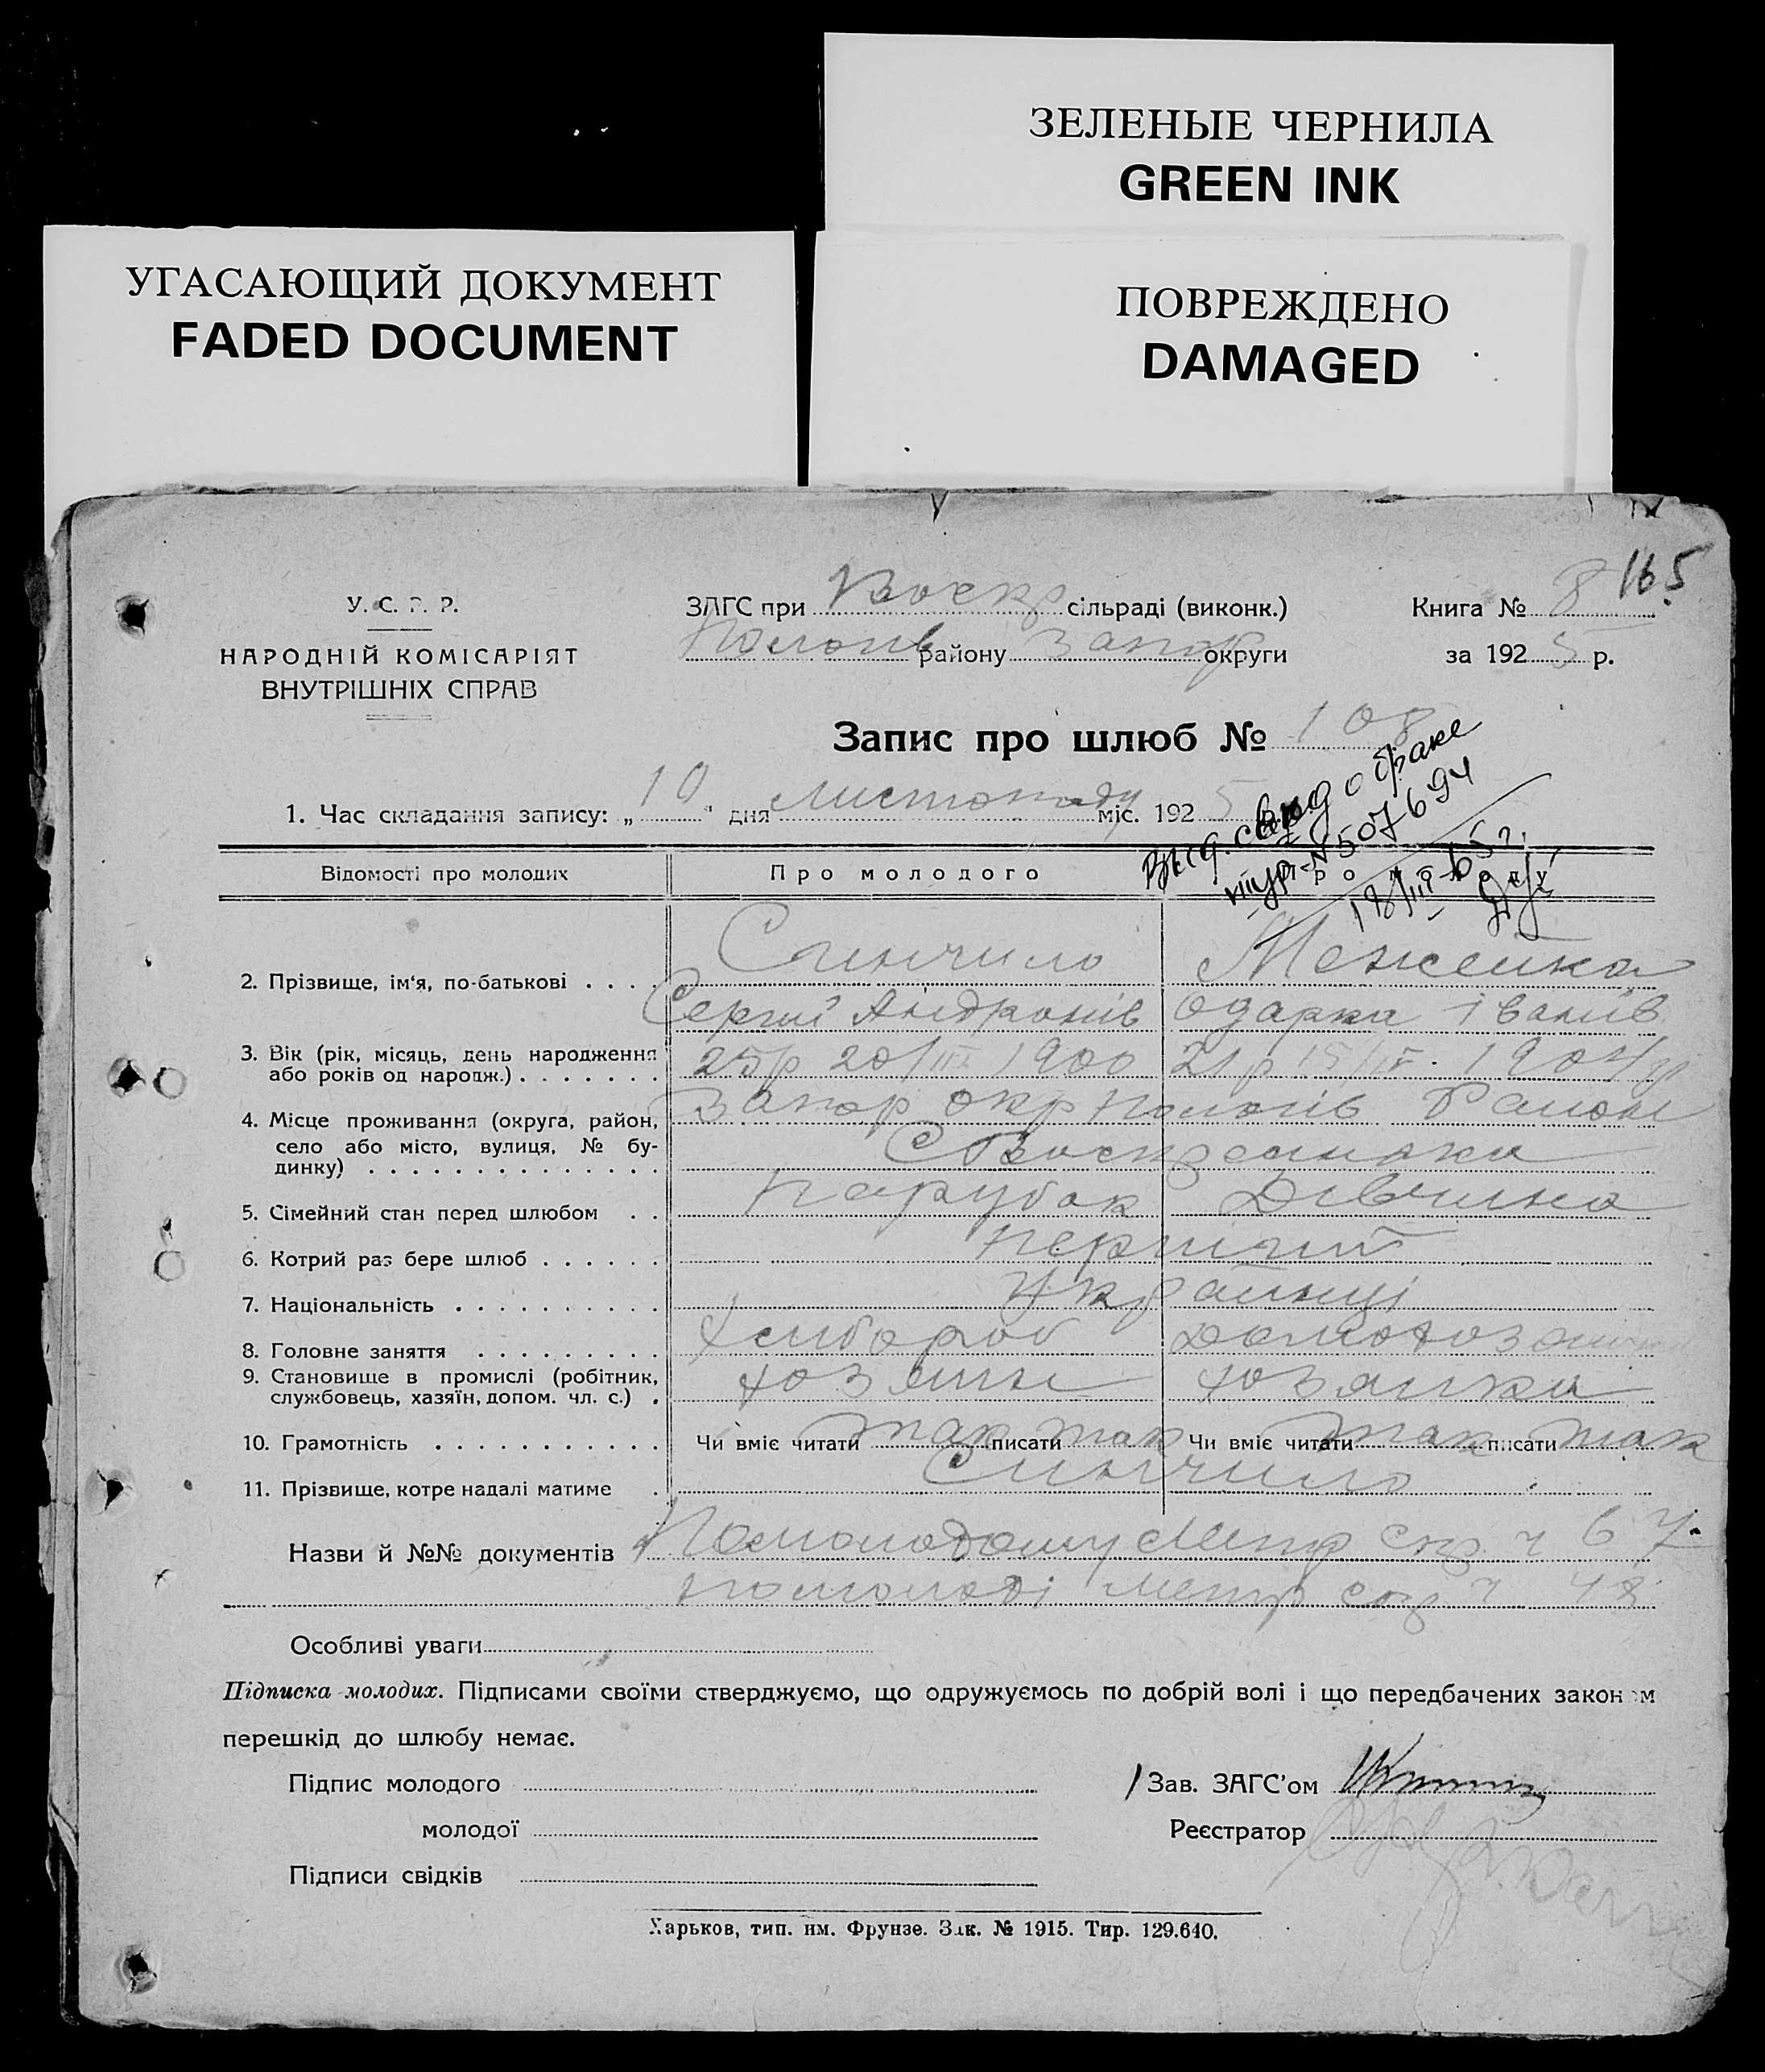 ЗЕЛЕНЫЕ ЧЕРНИЛА
GREEN INK
УГАСАЮЩИЙ ДОКУМЕНТ
FADED DOCUMENT
ПОВРЕЖДЕНО
DAMAGED
165
У. С. Р. Р.
НАРОДНІЙ КОМІСАРІЯТ
ВНУТРІШНІХ СПРАВ
ЗАГС при Воскр сільраді (виконк.)
Пологів району Запор округи
Книга № 8
за 1925 р.
Запис про шлюб № 108
1. Час складання запису: „10" дня Листопаду міс. 1925
Выд. свид о браке
№ 507694
18/III-65 г.
Відомості про молодих Про молодого Про молоду
2. Прізвище, ім'я, по-батькові . . . . Синчило Менжейка
Сергій Андронів Одарка Іванів
3. Вік (рік, місяць, день народження або років од народж.) . . . . . . . 25 р 20/III 1900 21 р 15/III 1904 р
4. Місце проживання (округа, район, село або місто, вулиця, № будинку) . . . . . . . . . . . . . . Запор окр Пологів Району
С Воскресенки
5. Сімейний стан перед шлюбом . . Парубок Дівчина
6. Котрий раз бере шлюб . . . . . . Перший
7. Національність . . . . . . . . . . Українці
8. Головне заняття . . . . . . . . . Хлібороб
9. Становище в промислі (робітник, службовець, хазяїн, допом. чл. с.) . хозяїн хозяйка
10. Грамотність . . . . . . . . . . . Чи вміє читати так писати так Чи вміє читати так писати так
11. Прізвище, котре надалі матиме . Синчило
Назви й №№ документів По молодому Метр спр ч 67.
по молоді метр спр ч 48
Особливі уваги
Підписка молодих. Підписами своїми стверджуємо, що одружуємось по добрій волі і що передбачених законом
перешкід до шлюбу немає.
Підпис молодого
Зав. ЗАГС'ом
молодої
Реєстратор
Підписи свідків
Харьков, тип. им. Фрунзе. Зак. № 1915. Тир. 129.640.